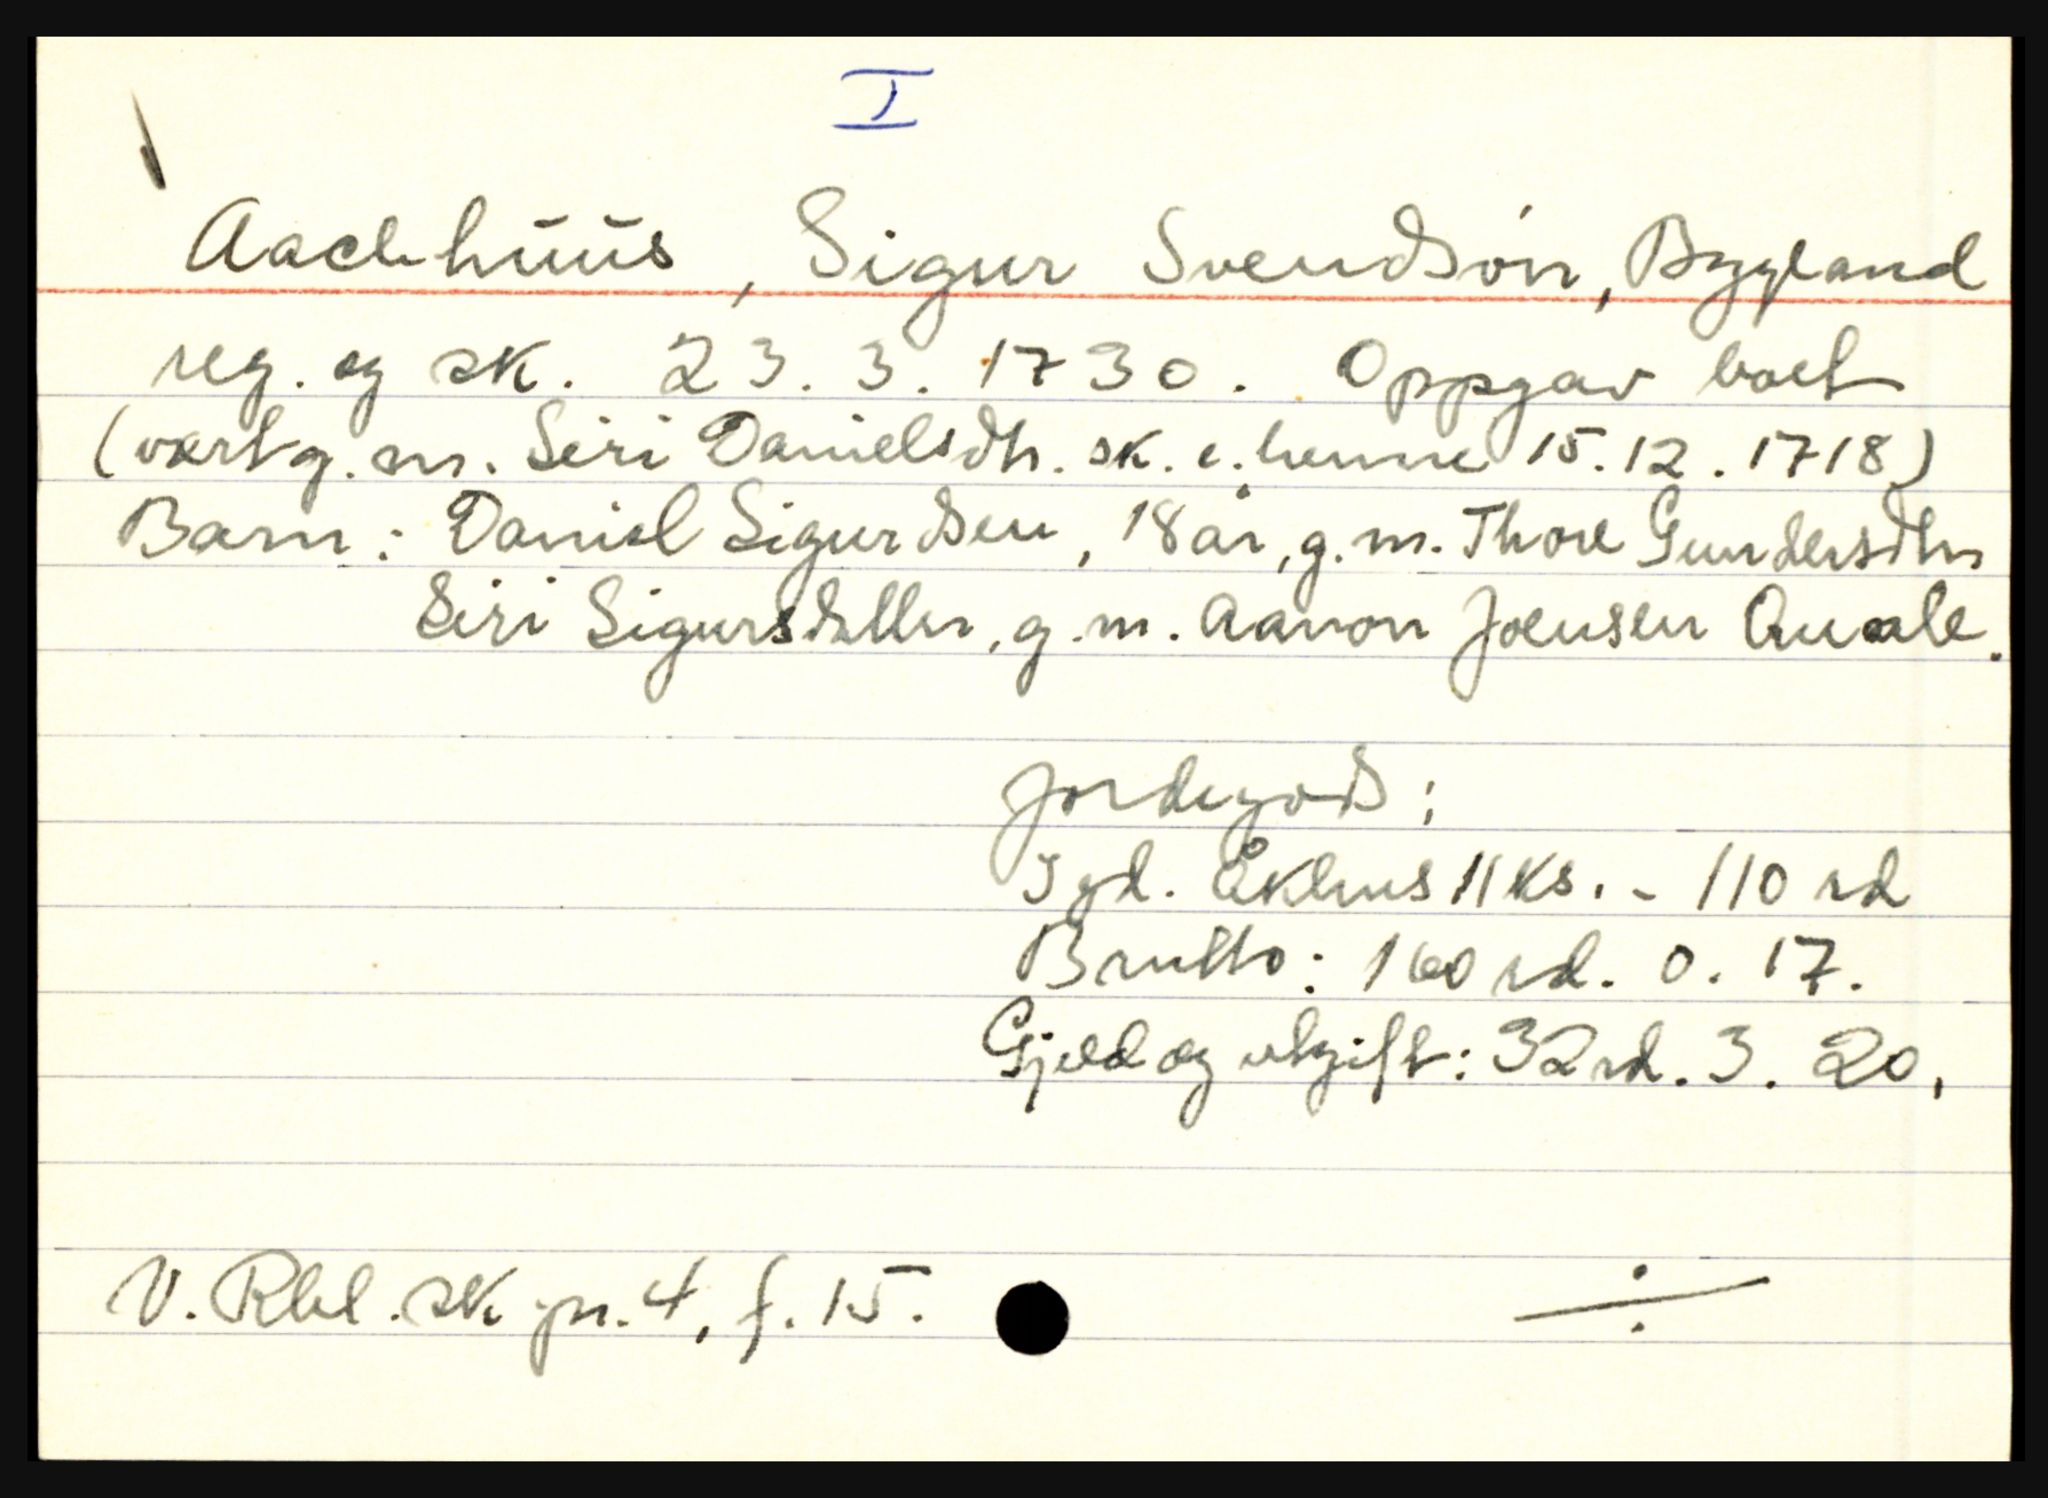 I
Aachhuus, Sigur Svendsón, Bygland
reg. og sk. 23. 3. 1730. Oppgav boet
(vært g. m. Siri Danielsdtr. sk. e. henne 15. 12. 1718)
Barn: Daniel Sigurdsen, 18 år, g. m. Thore Gundersdtr
Siri Sigursdatter, g. m. Aanon Joensen Quale.
Jordegods:
I gd. Åkhus 11 ks. - 110 rd
Brutto: 160 rd. 0. 17.
Gjeld og utgift: 32 rd. 3. 20.
V. Rbl. sk pr. 4, f. 15. ÷